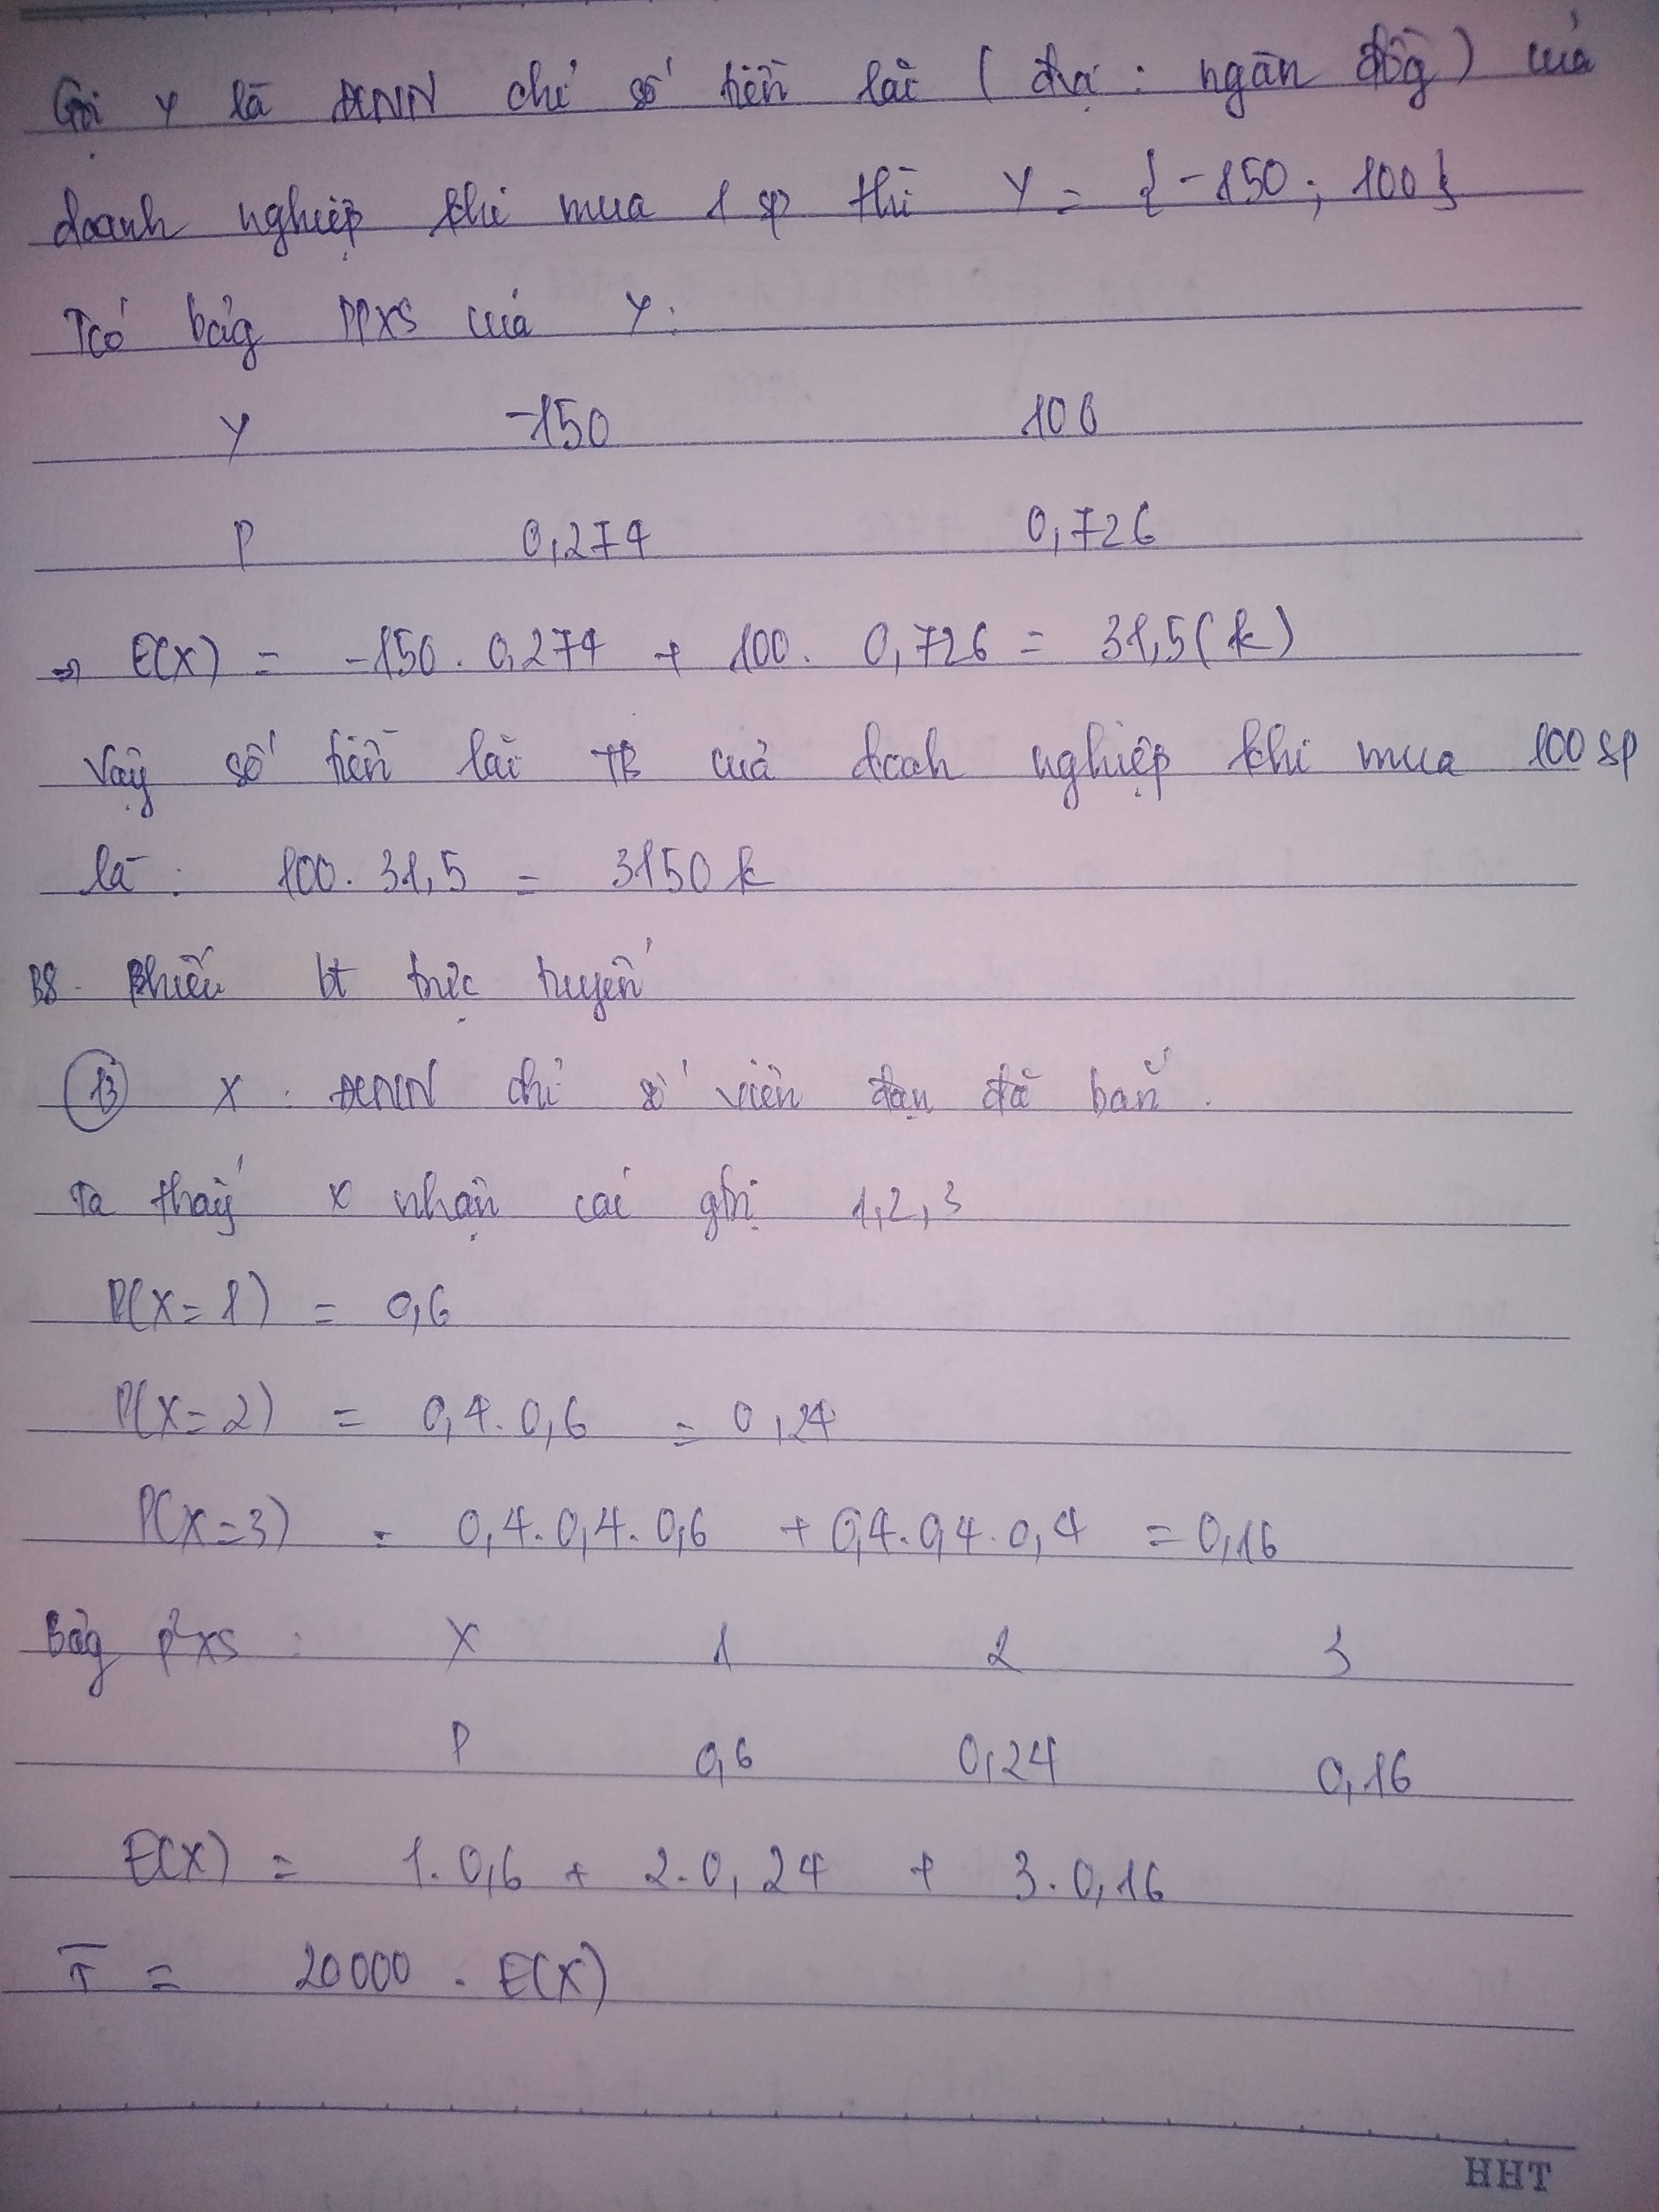 Gọi Y là ĐLNN chỉ số tiền lãi (đvị : ngàn đồg) của
doanh nghiệp khi mua 1 sp thì Y = {-150 ; 100}
Tcó bảg PPXS của Y :
Y -150 100
P 0,274 0,726
=> E(X) = -150 . 0,274 + 100 . 0,726 = 31,5 (k)
Vậy số tiền lãi TB cuả doah nghiệp khi mua 100 sp
là : 100 . 31,5 = 3150 k
B8 . Phiếu bt trực tuyến
(13) X : ĐLNN chỉ số viên đạn đã bắn .
Ta thấy X nhận các gtrị 1,2,3
P(X=1) = 0,6
P(X=2) = 0,4 . 0,6 = 0,24
P(X=3) = 0,4 . 0,4 . 0,6 + 0,4 . 0,4 . 0,4 = 0,16
Bảg p²xs : X 1 2 3
P 0,6 0,24 0,16
E(X) = 1 . 0,6 + 2 . 0,24 + 3 . 0,16
T̅ = 20000 . E(X)
HHT